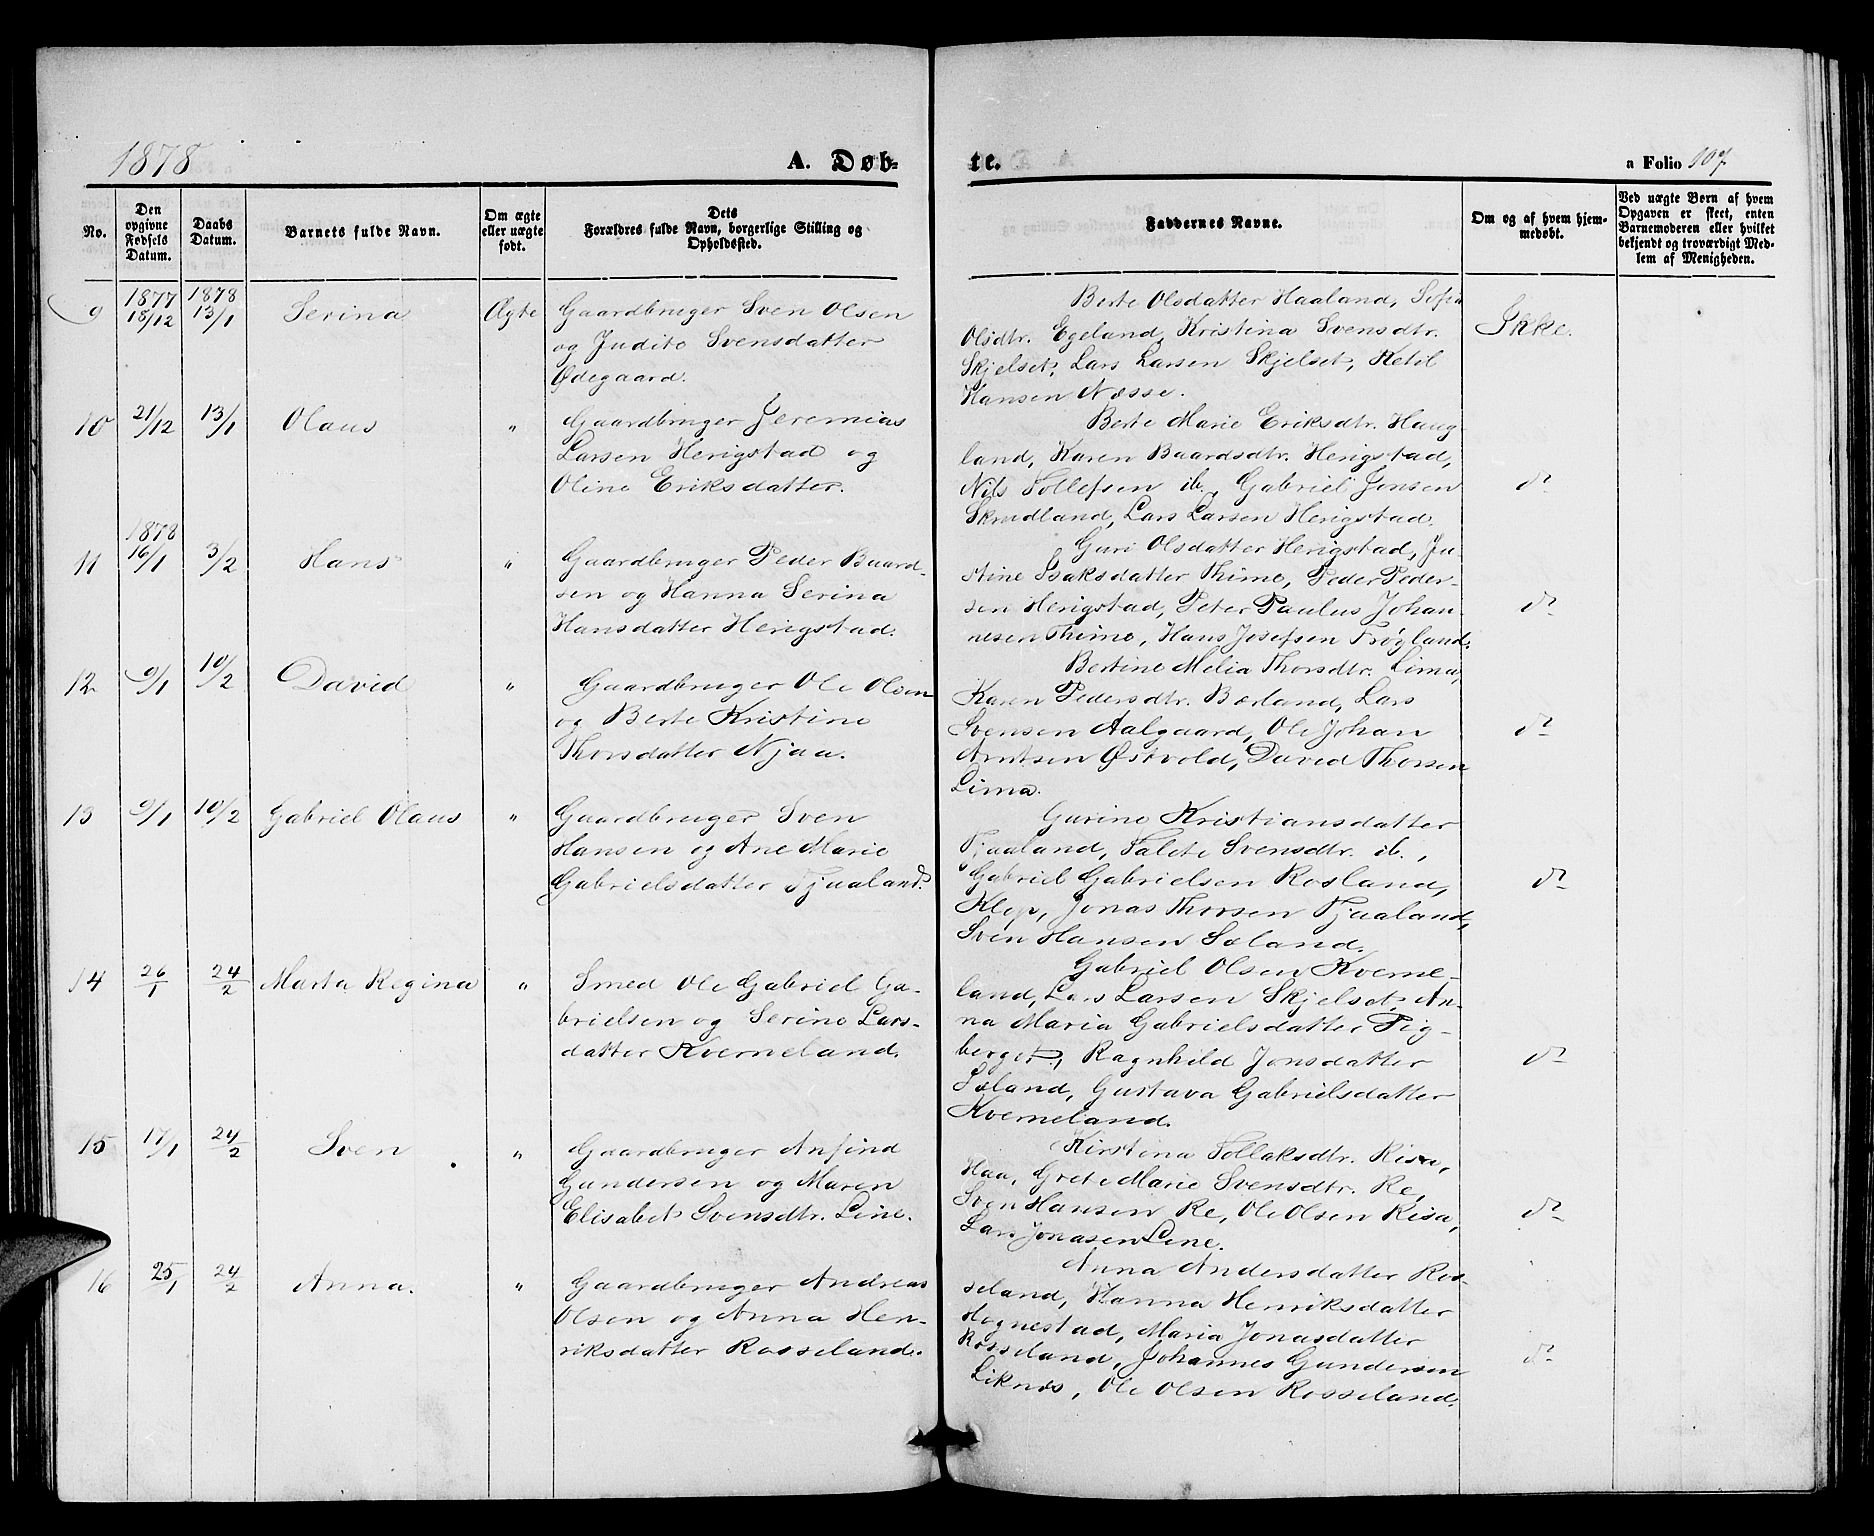 1878
A. Døb-
te.
a Folio 107
No.
Den opgivne Fødsels Datum.
Daabs Datum.
Barnets fulde Navn.
Om ægte eller uægte født.
Dets Forældres fulde Navn, borgerlige Stilling og Opholdssted.
Faddernes Navne.
Om og af hvem hjemmedøbt.
Ved uægte Børn af hvem Opgaven er skeet, enten Barnemoderen eller hvilket bekjendt og troværdigt Medlem af Menigheden.
9
1877 18/12
1878 13/1
Serina
Ægte
Gaardbruger Sven Olsen
og Judite Svensdatter
Ødegaard.
Berte Olsdatter Haaland, Sofia
Olsdtr. Egeland, Kristina Svensdtr.
Skjelset, Lars Larsen Skjelset, Ketil
Hansen Næsse.
Ikke.
10
21/12
13/1
Olaus
"
Gaardbruger Jeremias
Larsen Herigstad og
Oline Eriksdatter.
Berte Marie Eriksdtr. Haug
land, Karen Baardsdtr. Herigstad,
Nils Tollefsen ib., Gabriel Jonsen
Skrudland, Lars Larsen Herigstad.
do
11
1878 16/1
3/2
Hans
"
Gaardbruger Peder Baard-
sen og Hanna Serina
Hansdatter Herigstad.
Guri Olsdatter Herigstad, Ju-
stine Isaksdatter Thime, Peder Peder-
sen Herigstad, Peter Paulus Johan-
nesen Thime, Hans Josefsen Frøyland.
do
12
9/1
10/2
David
"
Gaardbruger Ole Olsen
og Berte Kristine
Thorsdatter Njaa.
Bertine Melia Thorsdtr. Lima,
Karen Pedersdtr. Bærland, Lars
Svensen Aalgaard, Ole Johan
Arntsen Østvold, David Thorsen
Lima.
do
13
9/1
10/2
Gabriel Olaus
"
Gaardbruger Sven
Hansen og Ane Marie
Gabrielsdatter Tjaaland.
Gurine Kristiansdatter
Tjaaland, Talete Svensdtr. ib.,
Gabriel Gabrielsen Rosland,
Klep, Jonas Thorsen Tjaaland,
Sven Hansen Søland.
do
14
26/1
24/2
Marta Regina
"
Smed Ole Gabriel Ga-
brielsen og Serine Lars-
datter Kverneland.
Gabriel Olsen Kverne-
land, Lars Larsen Skjelset, An-
na Maria Gabrielsdatter Tig-
berget, Ragnhild Jonsdatter
Søland, Gustava Gabrielsdatter
Kverneland.
do
15
17/1
24/2
Sven
"
Gaardbruger Anfind
Gundersen og Maren
Elisabet Svensdtr. Line.
Kirstina Tollaksdtr. Risa,
Haa, Grete Marie Svensdtr. Re,
Sven Hansen Re, Ole Olsen Risa,
Lars Jonasen Line.
do
16
25/1
24/2
Anna.
"
Gaardbruger Andreas
Olsen og Anna Hen-
riksdatter Rosseland.
Anna Andersdatter Ros-
seland, Hanna Henriksdatter
Hognestad, Maria Jonasdatter
Rosseland, Johannes Gundersen
Liknes, Ole Olsen Rosseland.
do